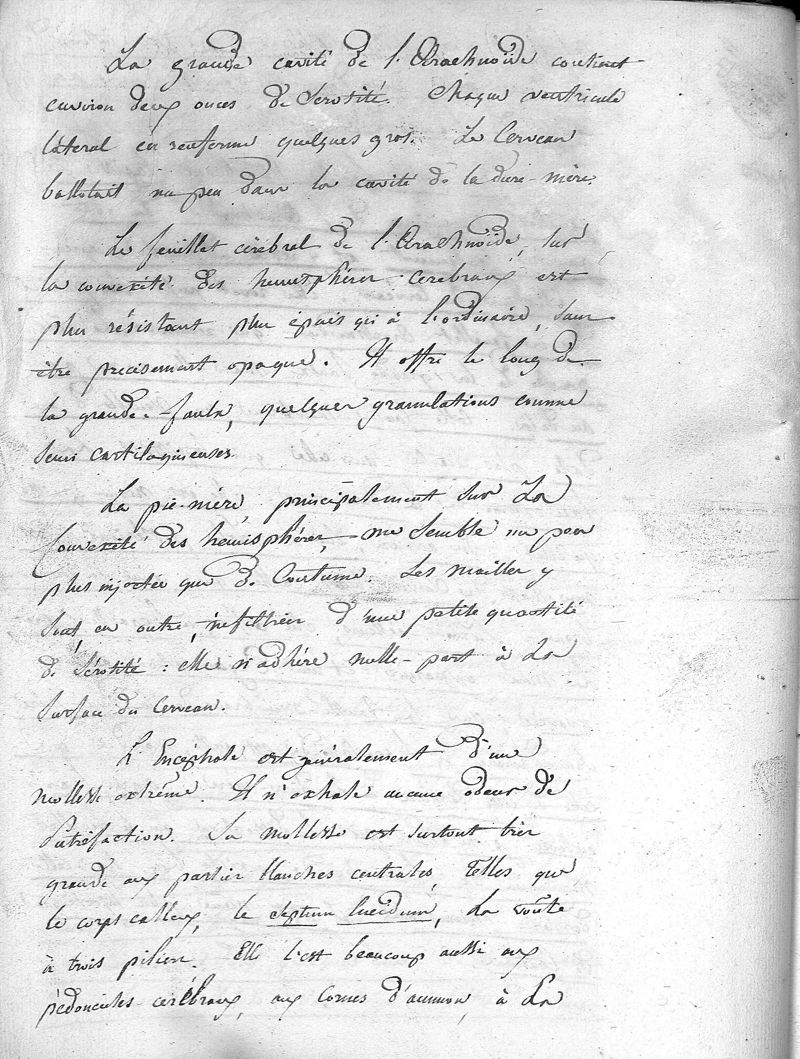 La grande cavité de l'Arachnoïde contient
environ deux onces de Sérosité. Chaque ventricule
latéral en renferme quelques gros. Le Cerveau
ballotait un peu dans la cavité de la dure-mère.
Le feuillet cérébral de l'Arachnoïde, sur
la convexité des hemisphères cerebraux est
plus résistant plus épais qu'à l'ordinaire, sans
être precisement opaque. Il offre le long de
la grande-faulx, quelques granulations comme
semi cartilagineuses.
La pie-mère, principalement sur la
Convexité des hemisphères, me semble un peu
plus injectée que de Coutume. Les mailles y
sont, en outre, infiltrées d'une petite quantité
de Sérosité : elle n'adhère nulle-part à la
surface du Cerveau.
L'Encéphale est généralement d'une
mollesse extrême. Il n'exhale aucune odeur de
Putréfaction. Sa mollesse est surtout très
grande aux parties blanches centrales, telles que
le corps calleux, le septum lucidum, la voûte
à trois piliers. Elle l'est beaucoup aussi aux
pédoncules cérébraux, aux Cornes d'ammon, à la